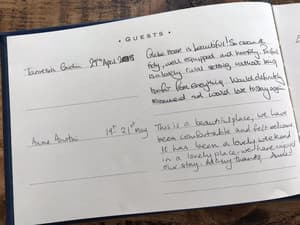 · GUESTS ·
29th April
House is beautiful! So clean &
tidy, well equipped and homely. In
is a lovely rural setting without being
too far from everything. Would definitely
recommend and would love to stay again
Anne 19th - 21st May
This is a beautiful place, we have
been comfortable and felt welcome
It has been a lovely weekend
in a lovely place, we have enjoyed
our stay. Many thanks